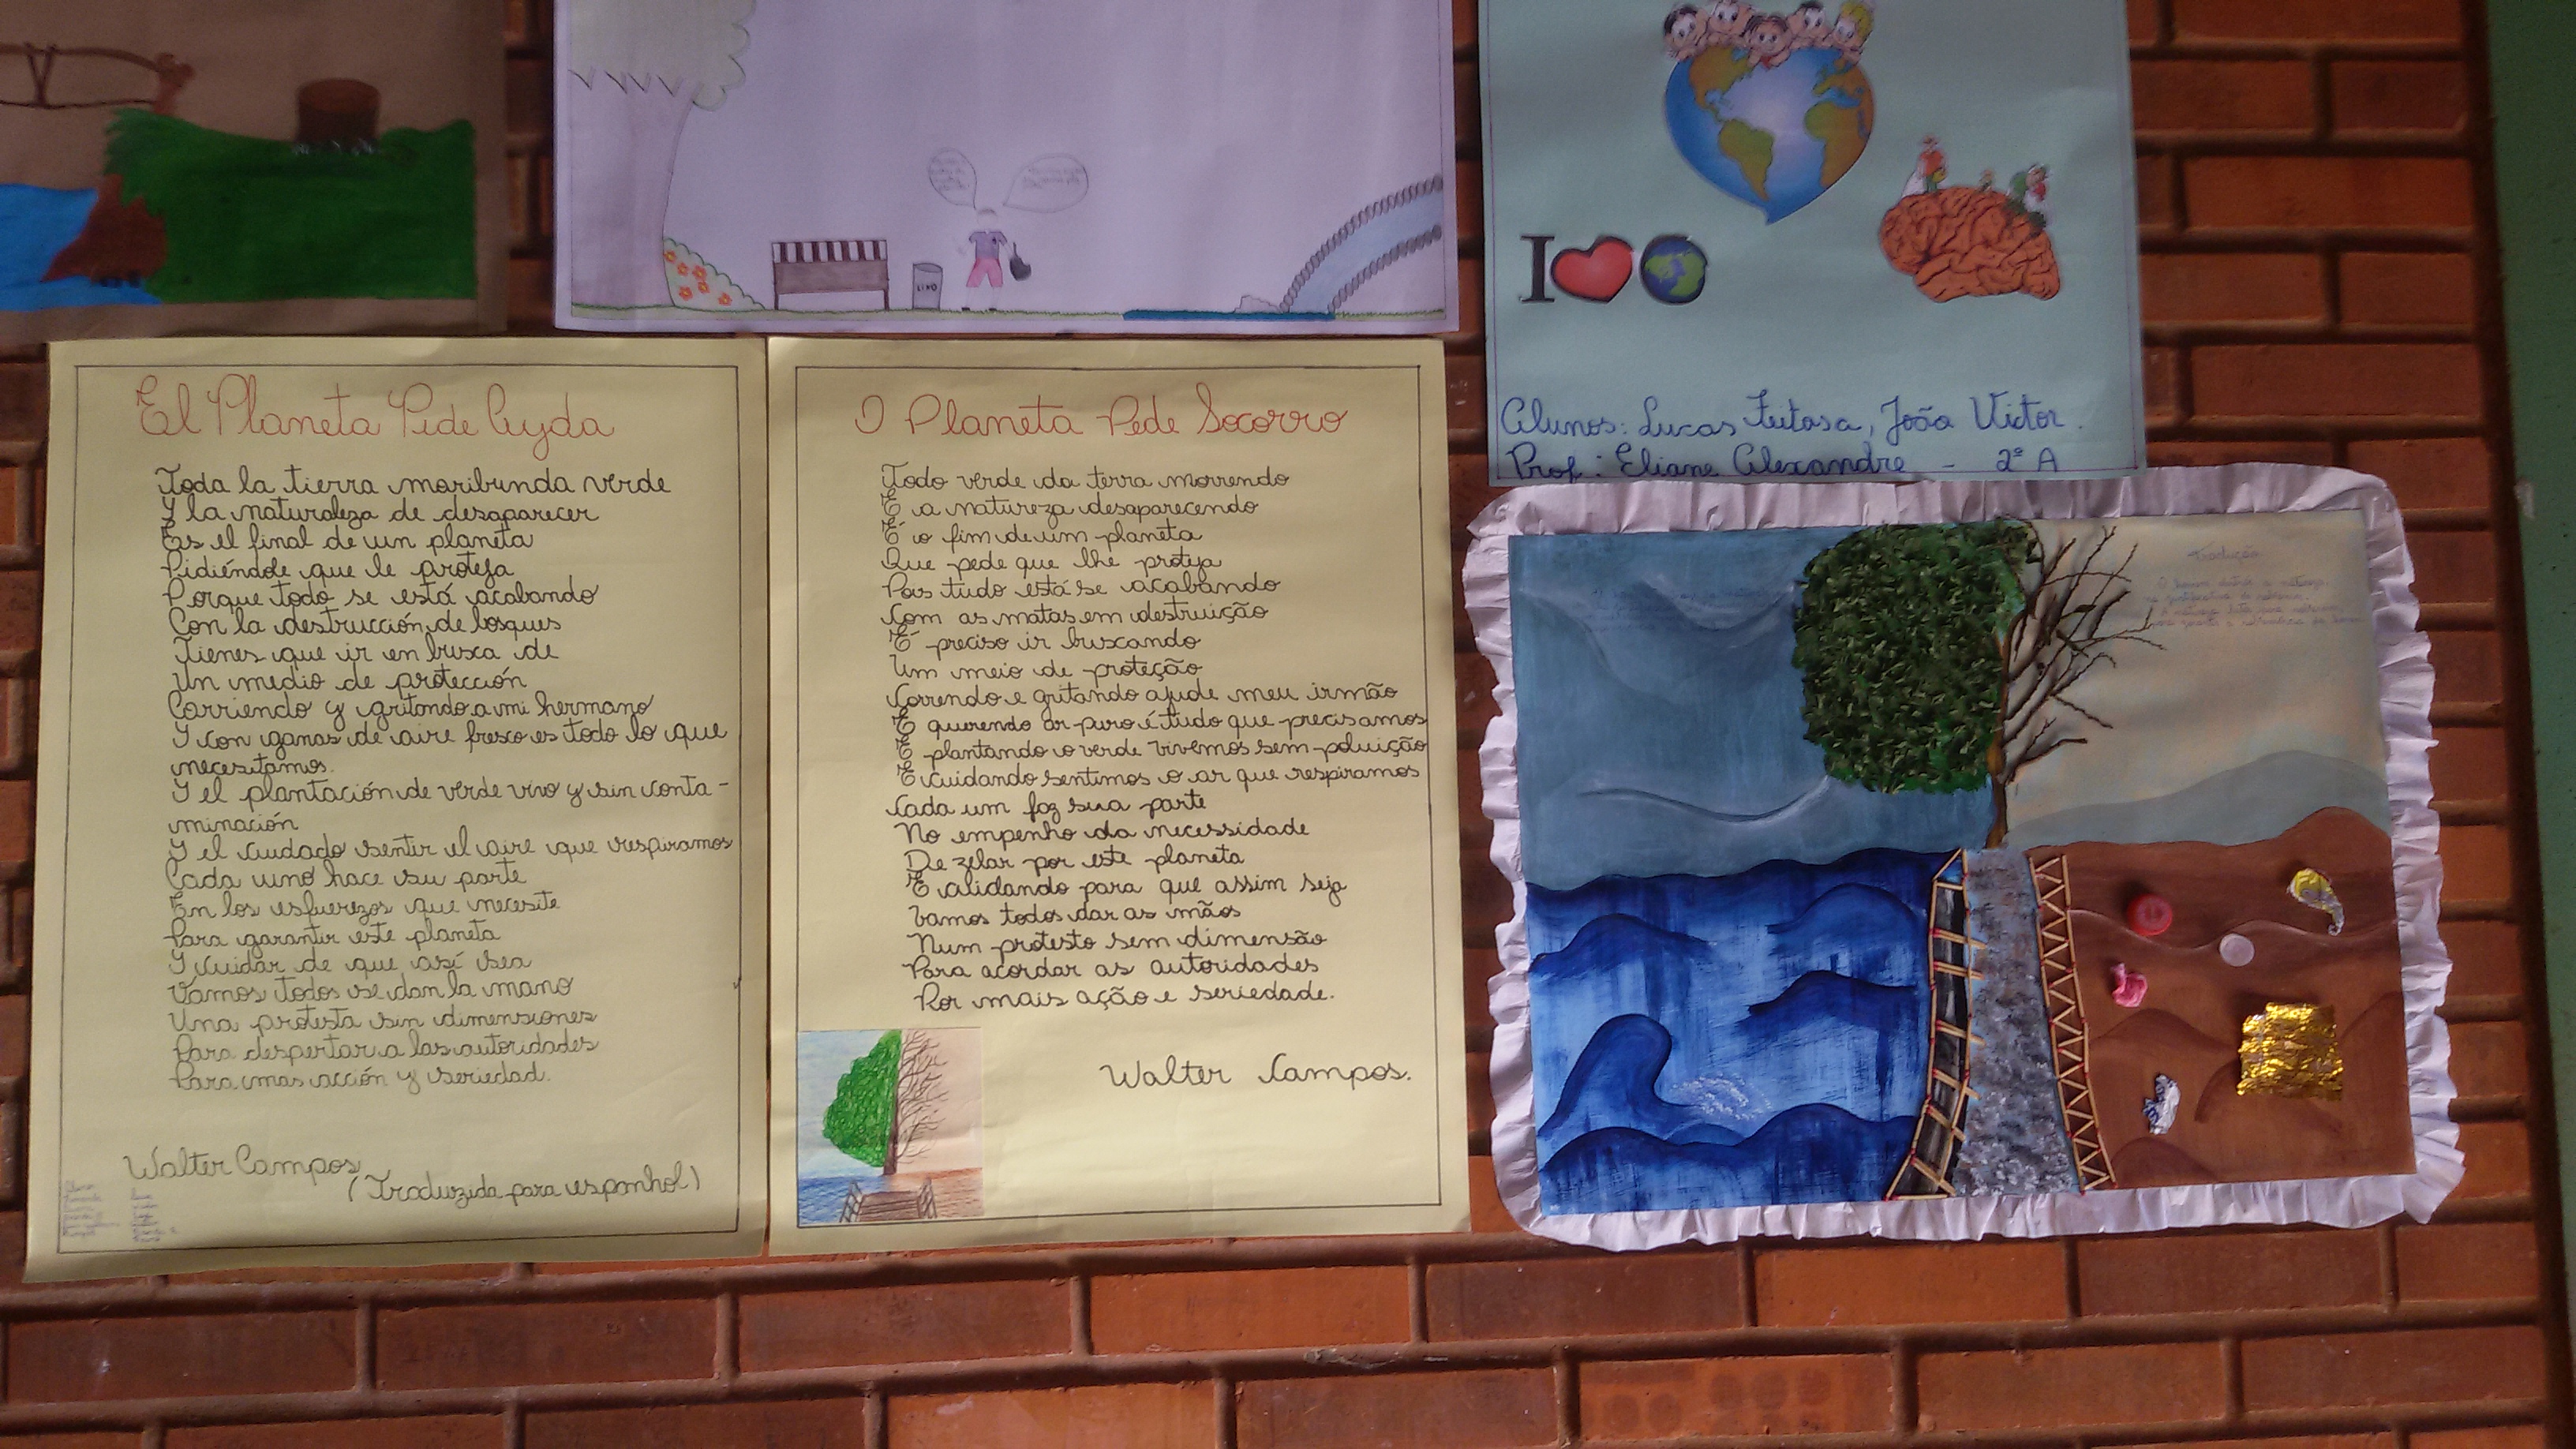 LIXO
I
Alunos: Lucas Feitosa, João Victor.
Prof.: Eliane Alexandre - 2º A
El Planeta Pide Ayda
Toda la tierra moribunda verde
Y la naturaleza de desaparecer
Es el final de un planeta
Pidiéndole que le proteja
Porque todo se está acabando
Con la destrucción de bosques
Tienes que ir en busca de
Un medio de protección
Corriendo y gritando a mi hermano
Y con ganas de aire fresco es todo lo que
necesitamos.
Y el plantación de verde vivo y sin conta-
minación
Y el cuidado sentir el aire que respiramos
Cada uno hace su parte
En los esfuerezos que necesite
Para garantir este planeta
Y cuidar de que así sea
Vamos todos se dan la mano
Una protesta sin dimensiones
Para despertar a las autoridades
Para mas acción y seriedad.
Walter Campos
(Traduzida para espanhol)
O Planeta Pede Socorro
Todo verde da terra morrendo
E a natureza desaparecendo
É o fim de um planeta
Que pede que lhe proteja
Pois tudo está se acabando
Com as matas em destruição
É preciso ir buscando
Um meio de proteção
Correndo e gritando ajude meu irmão
E querendo ar puro é tudo que precisamos
E plantando o verde vivemos sem poluição
E cuidando sentimos o ar que respiramos
Cada um faz sua parte
No empenho da necessidade
De zelar por este planeta
E cuidando para que assim seja
Vamos todos dar as mãos
Num protesto sem dimensão
Para acordar as autoridades
Por mais ação e seriedade.
Walter Campos.
Tradução